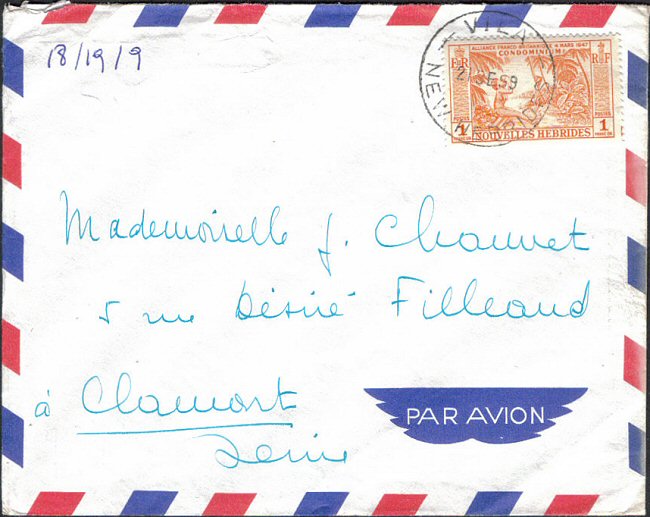 18/19/9
VILA
21 SE 59
NEW HEBRIDES
ALLIANCE FRANCO-BRITANNIQUE 4 MARS 1947
CONDOMINIUM
ER RF
POSTES POSTES
1 1
FRANC OR FRANC OR
NOUVELLES HEBRIDES
Mademoiselle J. Chauvet
5 rue Désiré Filleaud
à Clamart
Seine
PAR AVION